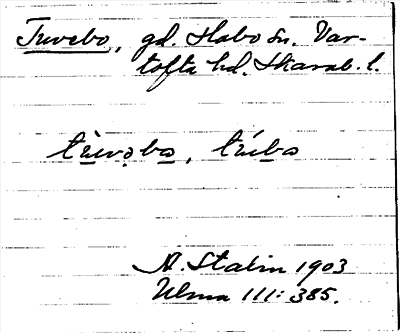 Tuvebo, gd. Habo sn. Var-
tofta hd. Skarab. l.
tùvəbo, túbo
A. Stalin 1903
Ulma 111: 385.